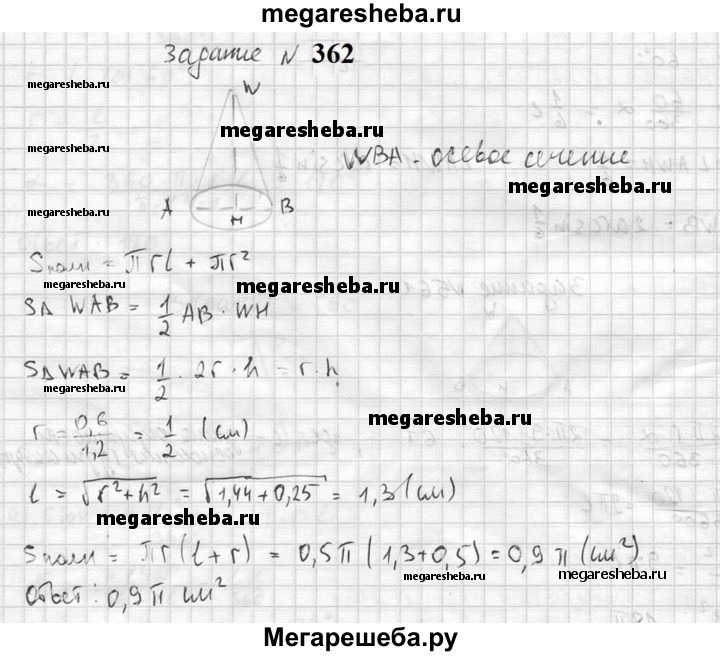 megaresheba.ru
Задание N 362
W
megaresheba.ru
megaresheba.ru
megaresheba.ru
WBA - осевое сечение
megaresheba.ru
A H B
Sполн = πrl + πr²
megaresheba.ru
SΔ WAB = 1/2 AB · WH
SΔWAB = 1/2 · 2r · h = r · h
megaresheba.ru
megaresheba.ru
r = 0,6/1,2 = 1/2 (см)
l = √(r²+h²) = √(1,44+0,25) = 1,3 (см)
megaresheba.ru
Sполн = πr(l+r) = 0,5π(1,3+0,5) = 0,9π(см²)
megaresheba.ru
megaresheba.ru
Ответ: 0,9π см²
Мегарешеба.ру